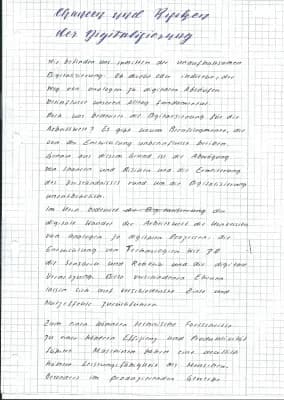 Chancen und Risiken
der Digitalisierung
Wir befinden uns inmitten der unaufhaltsamen
Digitalisierung. Ob direkt oder indirekt, der
Weg von analogen zu digitalen Abläufen
beeinflusst unseren Alltag fundamental.
Doch was bedeutet die Digitalisierung für die
Arbeitswelt? Es gibt kaum Berufszweige, die
von der Entwicklung unbeeinflusst bleiben.
Genau aus diesem Grund ist die Abwägung
von Chancen und Risiken und die Erweiterung
des Verständnisses rund um die Digitalisierung
unentbehrlich.
Im Kern bedeutet der
digitale Wandel der Arbeitswelt die Konversion
von analogen zu digitalen Prozessen, die
Entwicklung von Technologien wie z.B.
die Sensorik und Robotik und die digitale
Vernetzung. Diese verschiedenen Ebenen
lassen sich auf verschiedenste Ziele und
zurückführen.
Zum einen können technische Fortschritte
zu einer höheren Effizienz und Produktivität
führen. Maschinen haben eine deutlich
höhere Leistungsfähigkeit als Menschen.
Besonders im produzierenden Gewerbe